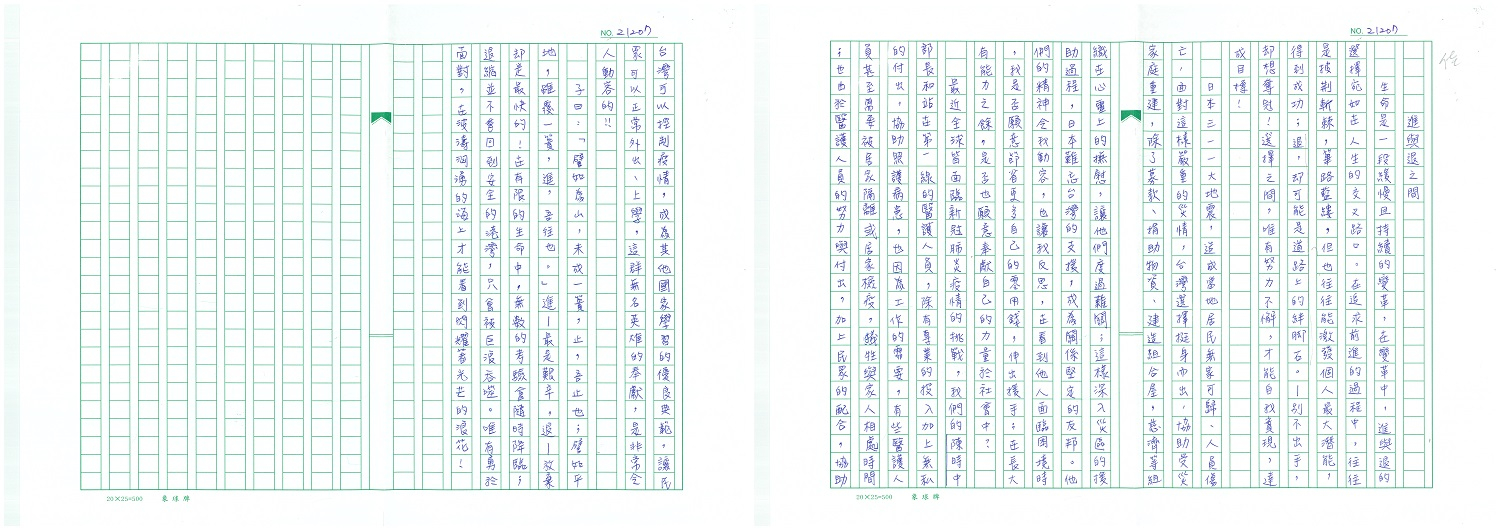 NO. 21207
進與退之間
生命是一段緩慢且持續的變革，在變革中，進與退的
選擇宛如在人生的交叉路口。在追求前進的過程中，往往
是披荊斬棘，篳路藍縷，但也往往能激發個人最大潛能，
得到成功；退，却可能是道路上的絆腳石。—別不出手，
却想奪魁！選擇之間，唯有努力不懈，才能自我實現，達
成目標！
日本三一一大地震，造成當地居民無家可歸、人員傷
亡，面對這樣嚴重的災情，台灣選擇挺身而出，協助受災
家庭重建，除了募款、捐助物資、建造組合屋，慈濟等組
織在心靈上的撫慰，讓他們度過難關；這樣深入災區的援
助過程，日本難忘台灣的支援，成為關係堅定的友邦。他
們的精神令我動容，也讓我反思，在看到他人面臨困境時
，我是否願意節省更多自己的零用錢，伸出援手；在長大
有能力之餘，是否也願意奉獻自己的力量於社會中？
最近全球皆面臨新冠肺炎疫情的挑戰，我們的陳時中
部長和站在第一線的醫護人員，除有專業的投入加上無私
的付出，協助照護病患，也因為工作的需要，有些醫護人
員甚至需要被居家隔離或居家檢疫，犧牲與家人相處時間
；也由於醫護人員的努力與付出，加上民眾的配合，協助
20×25=500 象球牌
NO. 21207
台灣可以控制疫情，成為其他國家學習的優良典範，讓民
眾可以正常外出、上學，這群無名英雄的奉獻，是非常令
人動容的!!
子曰：「譬如為山，未成一簣，止，吾止也；譬如平
地，雖覆一簣，進，吾往也。」進—最是艱辛，退—放棄
却是最快的！在有限的生命中，無數的考驗會隨時降臨；
退縮並不會回到安全的港灣，只會被巨浪吞噬。唯有勇於
面對，在波濤洶湧的海上才能看到閃耀著光芒的浪花！
20×25=500 象球牌